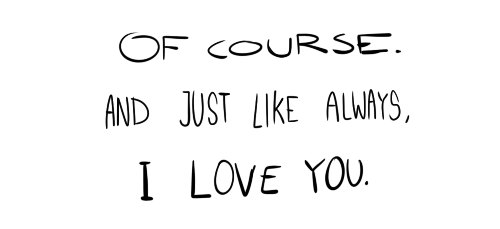 OF COURSE.
AND JUST LIKE ALWAYS,
I LOVE YOU.